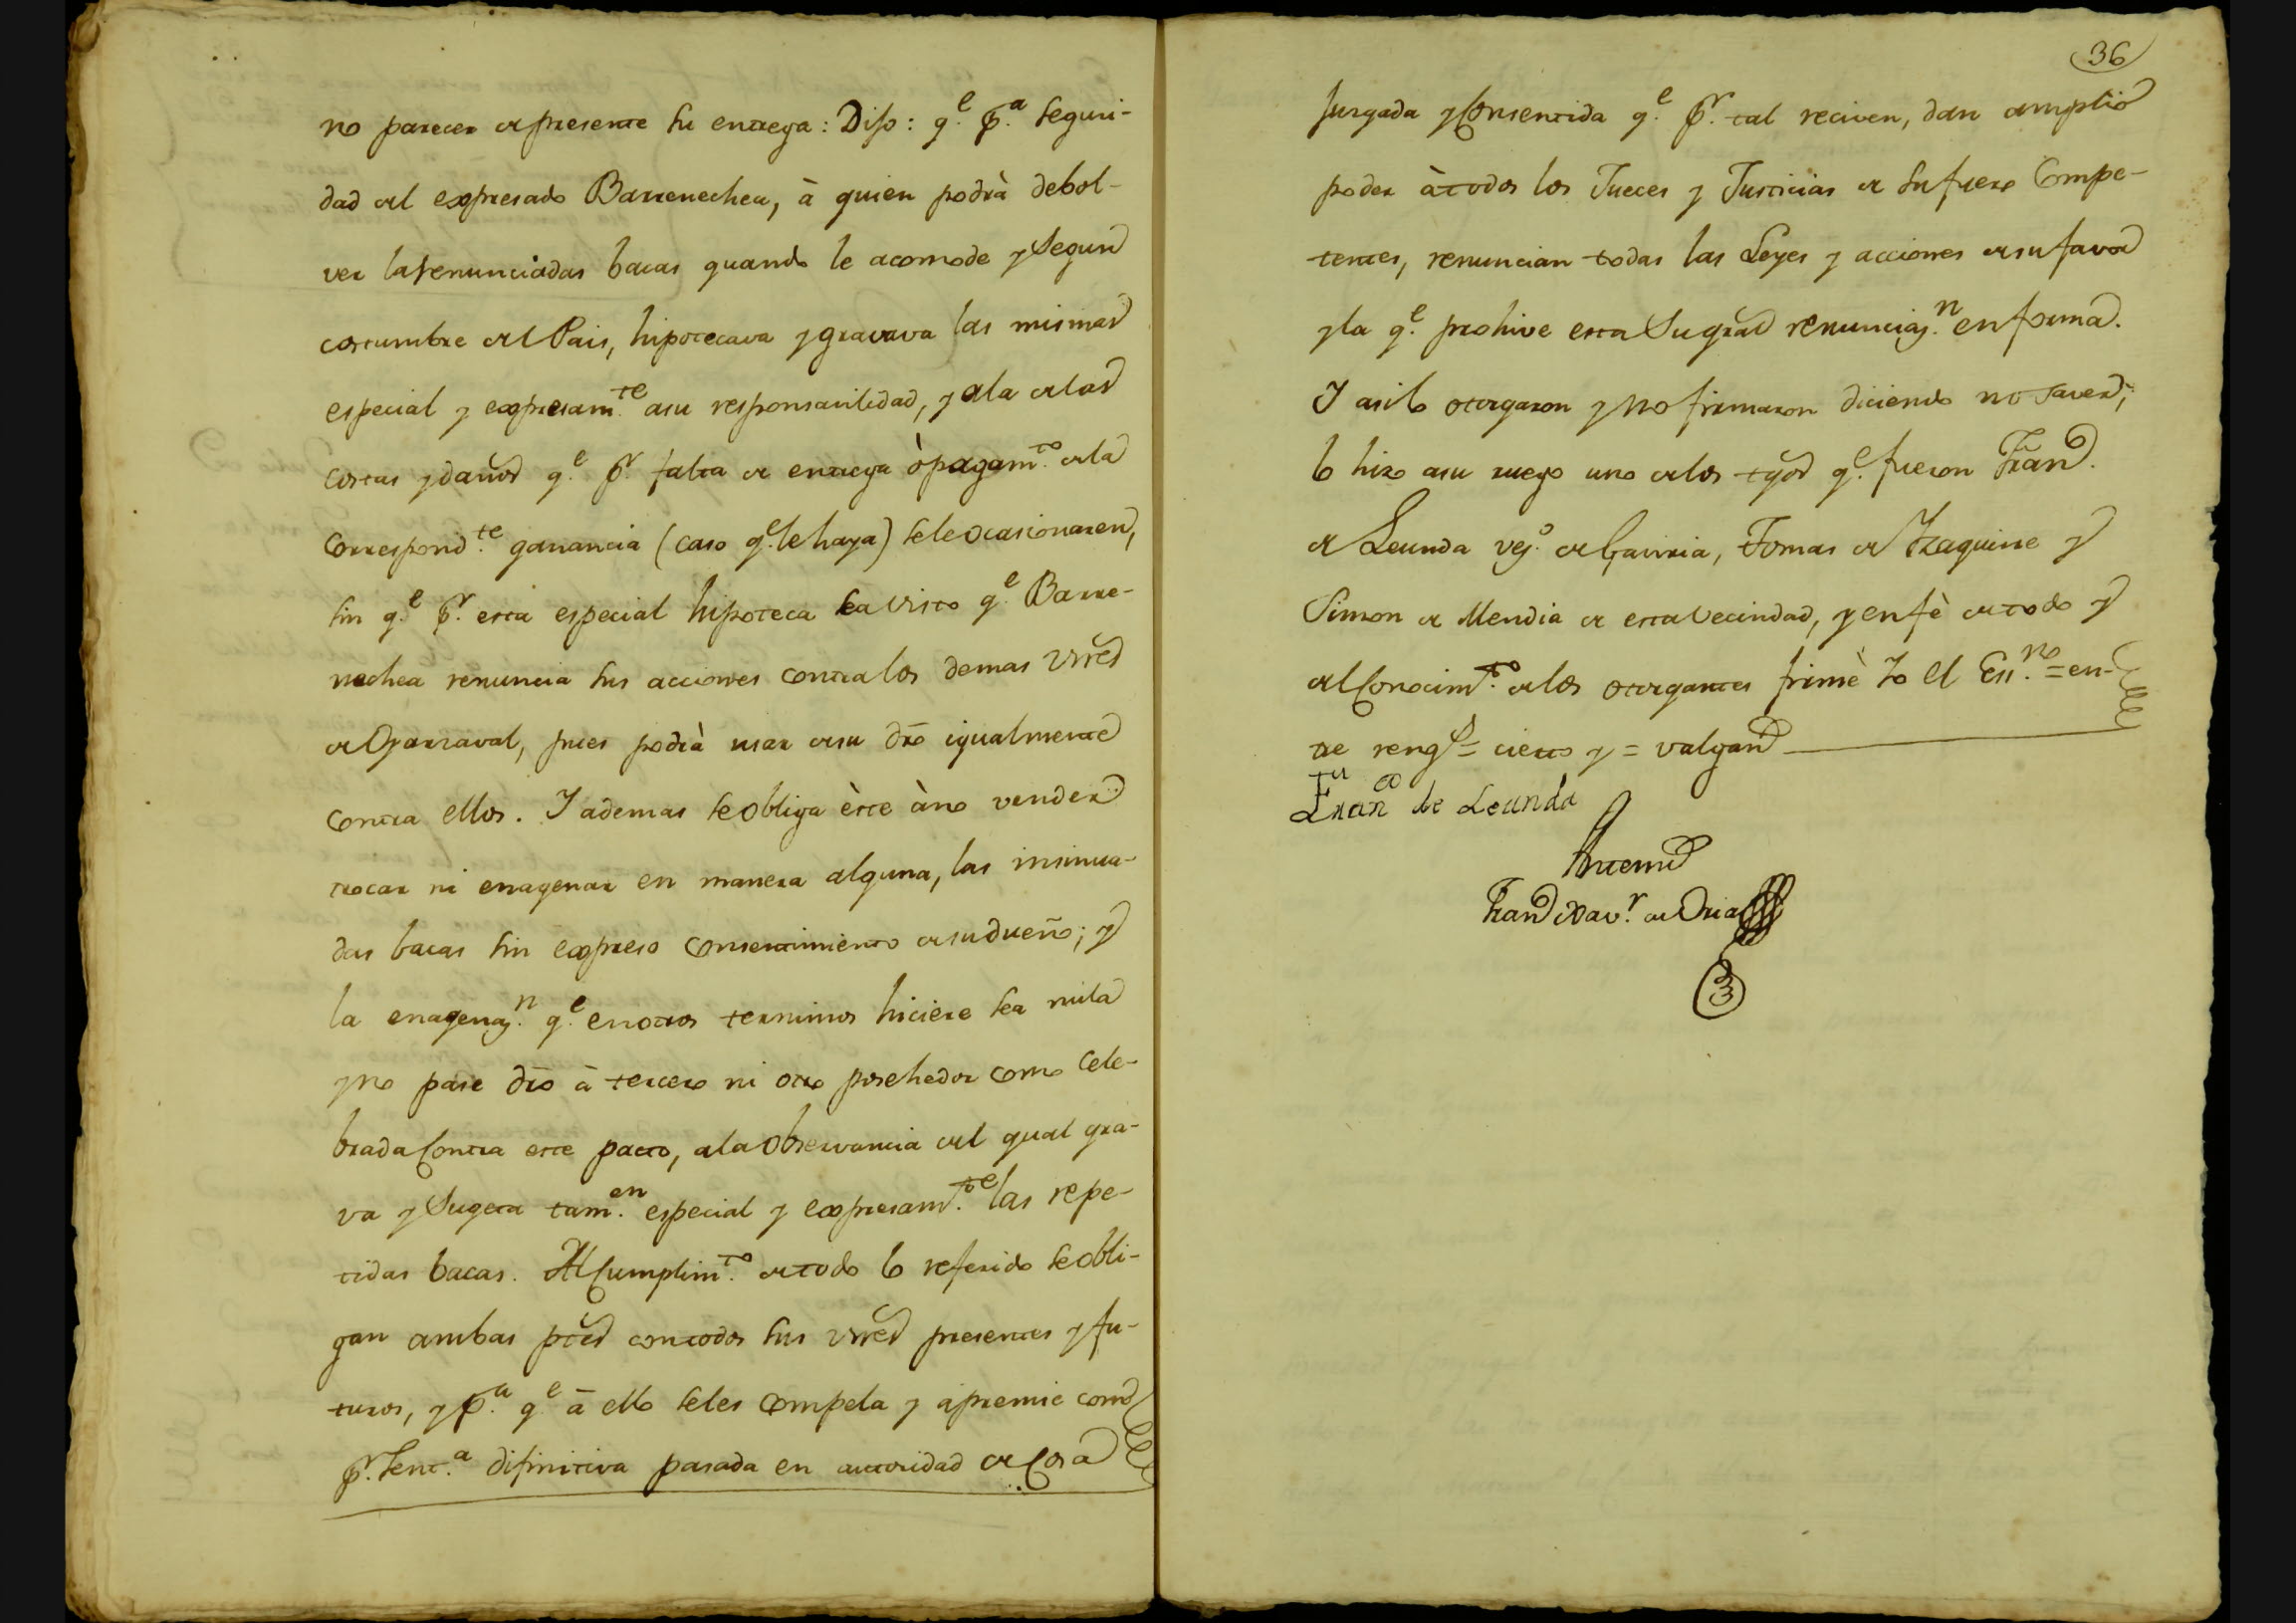 no parecer de presente su entrega: Dijo: q.e p.a seguri-
dad del expresado Barrenechea, à quien podrà debol-
ver las enunciadas bacas quando le acomode y segun
costumbre del Pais, hipotecava y gravava las mismas
especial y expresam.te a su responsavilidad, y a la de las
costas y daños q.e p.r falta de entrega ò pagam.to de la
correspond.te ganancia (caso q.e le haya) se le ocasionaren,
sin q.e p.r esta especial hipoteca sea visto q.e Barre-
nechea renuncia sus acciones contra los demas vienes
de Ojarzaval, pues podrà usar de su dro igualmente
contra ellos. I ademas se obliga èste à no vender
trocar ni enagenar en manera alguna, las insinua-
das bacas sin expreso consentimiento de su dueño; y
la enagenaz.n q.e en otros terminos hiciere sea nula
y no pase dro à tercero ni otro posehedor como cele-
brada contra este pacto, a la observancia del qual gra-
va y sugeta tam.en especial y expresam.te las repe-
tidas bacas. Al cumplim.to de todo lo referido se obli-
gan ambas ptes con todos sus vienes presentes y fu-
turos, y p.a q.e à ello se les compela y apremie como
p.r sent.a difinitiva pasada en autoridad de cosa
36
juzgada y consentida q.e p.r tal reciven, dan amplio
poder à todos los Jueces y Justicias de su fuero compe-
tentes, renuncian todas las Leyes y acciones de su favor
y la q.e prohive esta su gral renunciaz.n en forma.
I asi lo otorgaron y no firmaron diciendo no saver;
lo hizo a su ruego uno de los tgos q.e fueron Fran.co
de Leunda vez.o de Gaviria, Tomas de Izaguirre y
Simon de Mendia de esta vecindad, y en fè de todo y
del conocim.to de los otorgantes firmè Yo el Ess.no = en-
tre reng.s = cierto y = valgan
Fran.co de Leunda
Antemi
Fran.co Xav.r de Oria